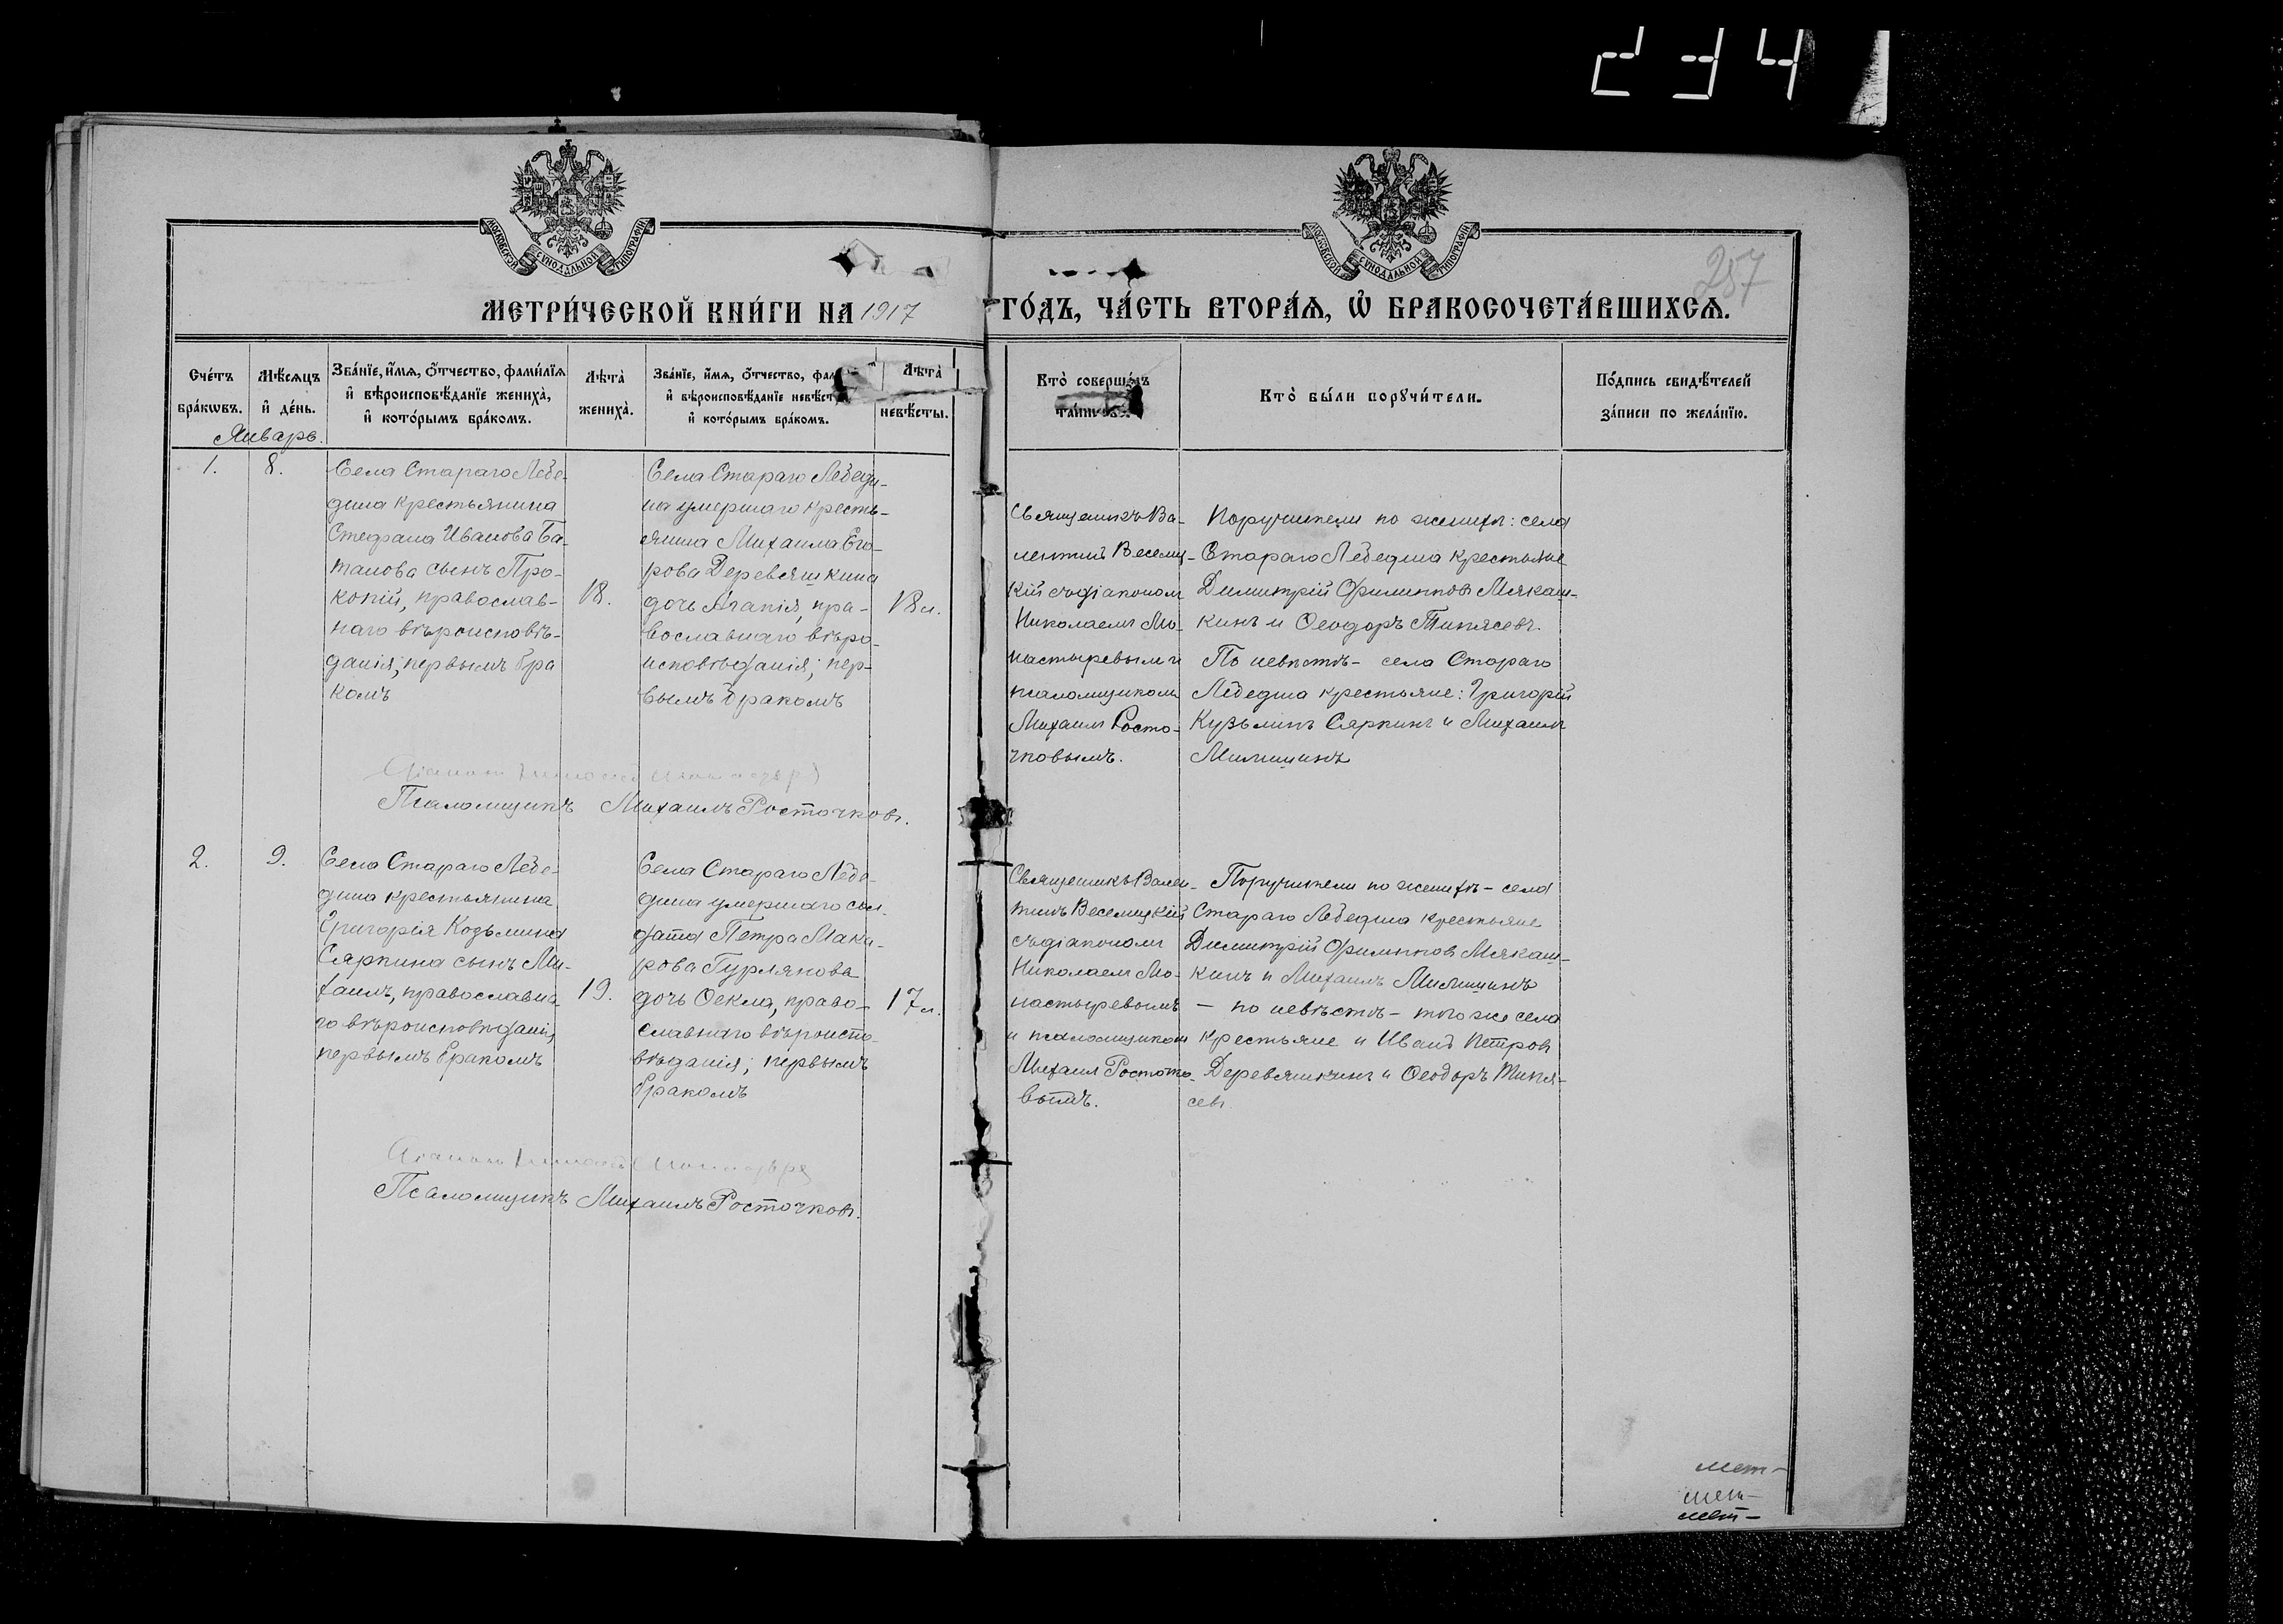 234
МОСКОВСКОЙ СѴНОДАЛЬНОЙ ТИПОГРАФІИ
МОСКОВСКОЙ СѴНОДАЛЬНОЙ ТИПОГРАФІИ
257
МЕТРИ́ЧЕСКОЙ КНИ́ГИ НА 1917 ГО́ДЪ, ЧА́СТЬ ВТОРА́Ѧ, Ѽ БРАКОСОЧЕТА́ВШИХСѦ.
Сче́тъ
бра́кωвъ.
Мѣ́сѧцъ
и҆ де́нь.
Зва́нїе, и҆́мѧ, ѻ҆́тчество, фами́лїѧ
и҆ вѣроисповѣ́данїе жениха̀,
и҆ кото́рымъ бра́комъ.
Лѣта̀
жениха̀.
Зва́нїе, и҆́мѧ, ѻ҆́тчество, фам
и҆ вѣроисповѣ́данїе невѣ́ст
и҆ кото́рымъ бра́комъ.
Лѣта̀
невѣ́сты.
Кто̀ соверша́лъ
та́инство.
Кто̀ бы́ли порꙋчи́тели.
По́дпись свидѣ́телей
за́писи по жела́нїю.
Январь.
1.
8.
Села Стараго Лебе-
дина крестьянина
Стефана Иванова Ба-
танова сынъ Про-
копій, православ-
наго вѣроисповѣ-
данія; первымъ бра
комъ
18.
Села Стараго Лебеди-
на умершаго кресть-
янина Михаила Его-
рова Деревяшкина
дочь Агапія, пра-
вославнаго вѣро-
исповѣданія; пер-
вымъ бракомъ
18 л.
Священикъ Ва-
лентинъ Веселиц-
кій съ діакономъ
Николаемъ Мо-
настыревымъ и
псаломщикомъ
Михаилъ Росто-
чковымъ.
Поручители по женихѣ: села
Стараго Лебедина крестьяне
Димитрій Филипповъ Мякаш-
кинъ и Ѳеодоръ Типясевъ.
По невѣстѣ - села Стараго
Лебедина крестьяне: Григорій
Кузьминъ Сяркинъ и Михаилъ
Милишинъ
Псаломщикъ Михаилъ Росточковъ.
2.
9.
Села Стараго Лебе-
дина крестьянина
Григорія Козьмина
Сяркина сынъ Ми-
хаилъ, православна
го вѣроисповѣданія,
первымъ бракомъ
19.
Села Стараго Лебе-
дина умершаго сол-
дата Петра Мака-
рова Гурлянова
дочь Ѳекла, право-
славнаго вѣроиспо-
вѣданія; первымъ
бракомъ
17 л.
Священикъ Вален-
тинъ Веселицкій
съ діакономъ
Николаемъ Мо-
настыревымъ
и псаломщикомъ
Михаил Росточко-
вымъ.
Поручители по женихѣ - села
Стараго Лебедина крестьяне
Димитрій Филипповъ Мякаш-
кинъ и Михаилъ Милишинъ
- по невѣстѣ - того же села
крестьяне и Иванъ Петровъ
Деревяшкинъ и Ѳеодоръ Типя-
севъ.
Псаломщикъ Михаилъ Росточковъ.
мет-
мет-
мет-